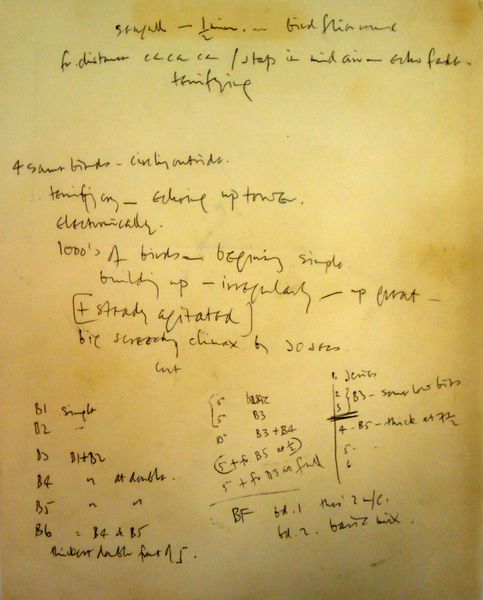 seagulls — 1/2 — bird flies round
fr. distance ca ca ca / stops in mid air — echo fades.
terrifying
4 same birds — circling outside.
terrifying — echoing up tower.
electronically.
1000's of birds — beginning simple.
building up — irregularly — up great —
[+ steady agitated]
big screechy climax by 30 secs.
cut
B1 simple
B2 "
B3 B1+B2
B4 " at double.
B5 " "
B6 = B4 & B5
thickest double
5" basic
5" B3
10" B3 + B4
5 + fr B5 at 1/2
5 + fr B3 in full
BF bd. 1 this 2
bd. 2. basic mix.
1. series
2 } B3 — some low bits
3
4 — B5 — thick at 7 1/2
5 -
6